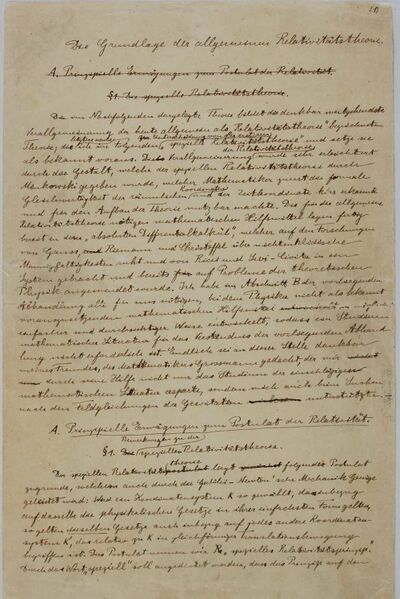 Die Grundlage der allgemeinen Relativitätstheorie.
A. Prinzipielle Erwägungen zum Postulat der Relativität.
§1. Die spezielle Relativitätstheorie.
Die im Nachfolgenden dargelegte Theorie bildet die denkbar weitgehendste
Verallgemeinerung der heute allgemein als "Relativitätstheorie" bezeichneten
Theorie; die letztere im folgenden "spezielle Relativitätstheorie" und setze sie
als bekannt voraus. Die Verallgemeinerung der Relativitätstheorie wurde sehr erleichtert
durch die Gestalt, welche der speziellen Relativitätstheorie durch
Minkowski gegeben wurde, welcher Mathematiker zuerst die formale
Gleichwertigkeit der räumlichen Koordinaten und der Zeitkoordinate klar erkannte
und für den Aufbau der Theorie nutzbar machte. Die für die allgemeine
Relativitätstheorie nötigen mathematischen Hilfsmittel lagen fertig
bereit in dem "absoluten Differentialkalkül", welcher auf den Forschungen
von Gauss, Riemann und Christoffel über nichteuklidische
Mannigfaltigkeiten ruht und von Ricci und Levi-Civita in ein
System gebracht und bereits auf Probleme der theoretischen
Physik angewendet wurde. Ich habe im Abschnitt B der vorliegenden
Abhandlung alle für uns nötigen, bei dem Physiker nicht als bekannt
vorauszusetzenden mathematischen Hilfsmittel in möglichst
einfacher und durchsichtiger Weise entwickelt, sodass ein Studium
mathematischer Literatur für das Verständnis der vorliegenden Abhand
lung nicht erforderlich ist. Endlich sei an dieser Stelle dankbar
meines Freundes, des Mathematikers Grossmann gedacht, der mir
durch seine Hilfe nicht nur das Studium der einschlägigen
mathematischen Literatur ersparte, sondern mich auch beim Suchen
nach den Feldgleichungen der Gravitation unterstützte.
A. Prinzipielle Erwägungen zum Postulat der Relativität.
Bemerkungen zu der
§1. Die speziellen Relativitätstheorie.
Der speziellen Relativitätstheorie liegt folgendes Postulat
zugrunde, welchem auch durch die Galilei-Newton'sche Mechanik Genüge
geleistet wird: Wird ein Koordinatensystem K so gewählt, dass inbezug
auf dasselbe die physikalischen Gesetze in ihrer einfachsten Form gelten,
so gelten dieselben Gesetze auch inbezug auf jedes andere Koordinaten-
system K', das relativ zu K in gleichförmiger Translationsbewegung
begriffen ist. Dies Postulat nennen wir "spezielles Relativitätsprinzip."
Durch das Wort "speziell" soll angedeutet werden, dass das Prinzip auf den